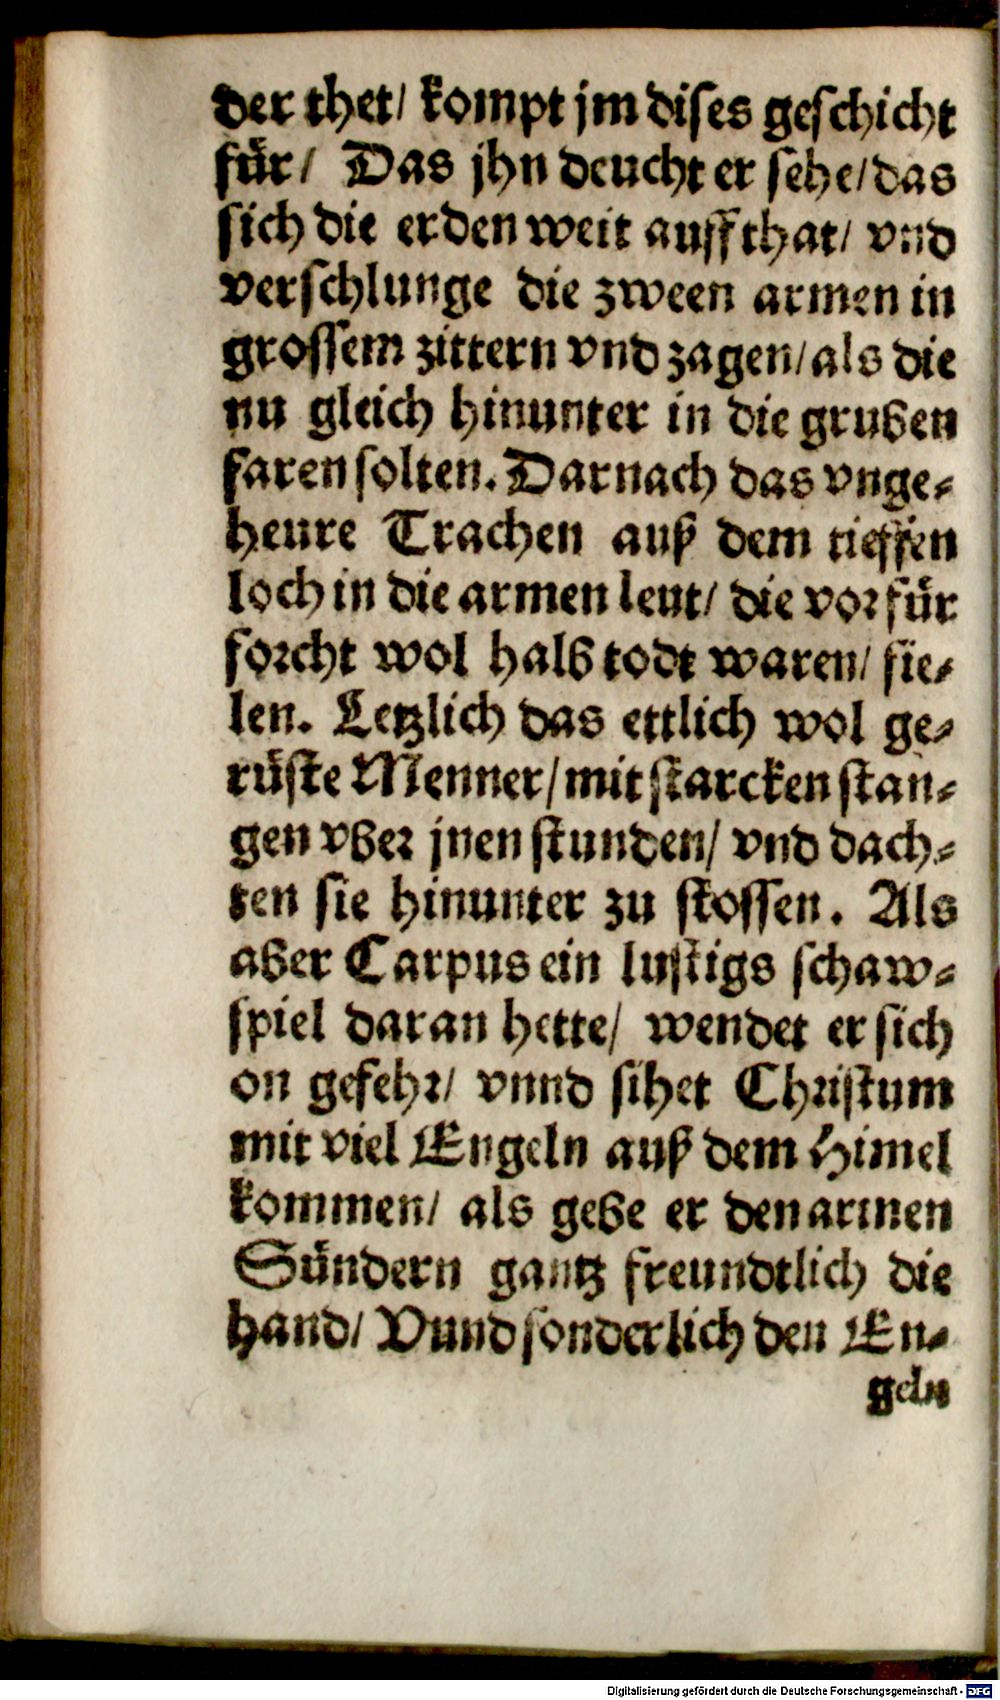 der thet/ kompt jm dises geschicht
für/ Das jhn deucht er sehe/das
sich die erden weit auff that/ vnd
verschlunge die zween armen in
grossem zittern vnd zagen/als die
nu gleich hinunter in die gruben
faren solten. Darnach das vnge-
heure Trachen auß dem tieffen
loch in die armen leut/ die vor für
forcht wol halb todt waren/ fie-
len. Letzlich das ettlich wol ge-
rüste Menner/mit starcken stan-
gen vber jnen stunden/ vnd dach-
ten sie hinunter zu stossen. Als
aber Carpus ein lustigs schaw-
spiel daran hette/ wendet er sich
on gefehr/ vnnd sihet Christum
mit viel Engeln auß dem Himel
kommen/ als gebe er den armen
Sündern gantz freundtlich die
hand/ Vnnd sonderlich den En-
geln
Digitalisierung gefördert durch die Deutsche Forschungsgemeinschaft - DFG